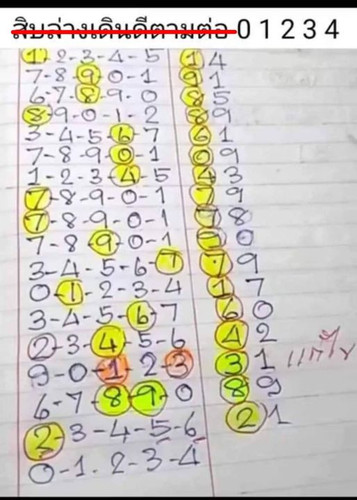 สิบล่างเดินดีตามต่อ 0 1 2 3 4
1-2-3-4-5 14
7-8-9-0-1 91
6-7-8-9-0 85
8-9-0-1-2 89
3-4-5-6-7 61
7-8-9-0-1 09
1-2-3-4-5 43
7-8-9-0-1 79
7-8-9-0-1 98
7-8-9-0-1 90
3-4-5-6-7 79
0-1-2-3-4 17
3-4-5-6-7 60
2-3-4-5-6 42
9-0-1-2-3 31 แก้ไข
6-7-8-9-0 89
2-3-4-5-6 21
0-1-2-3-4